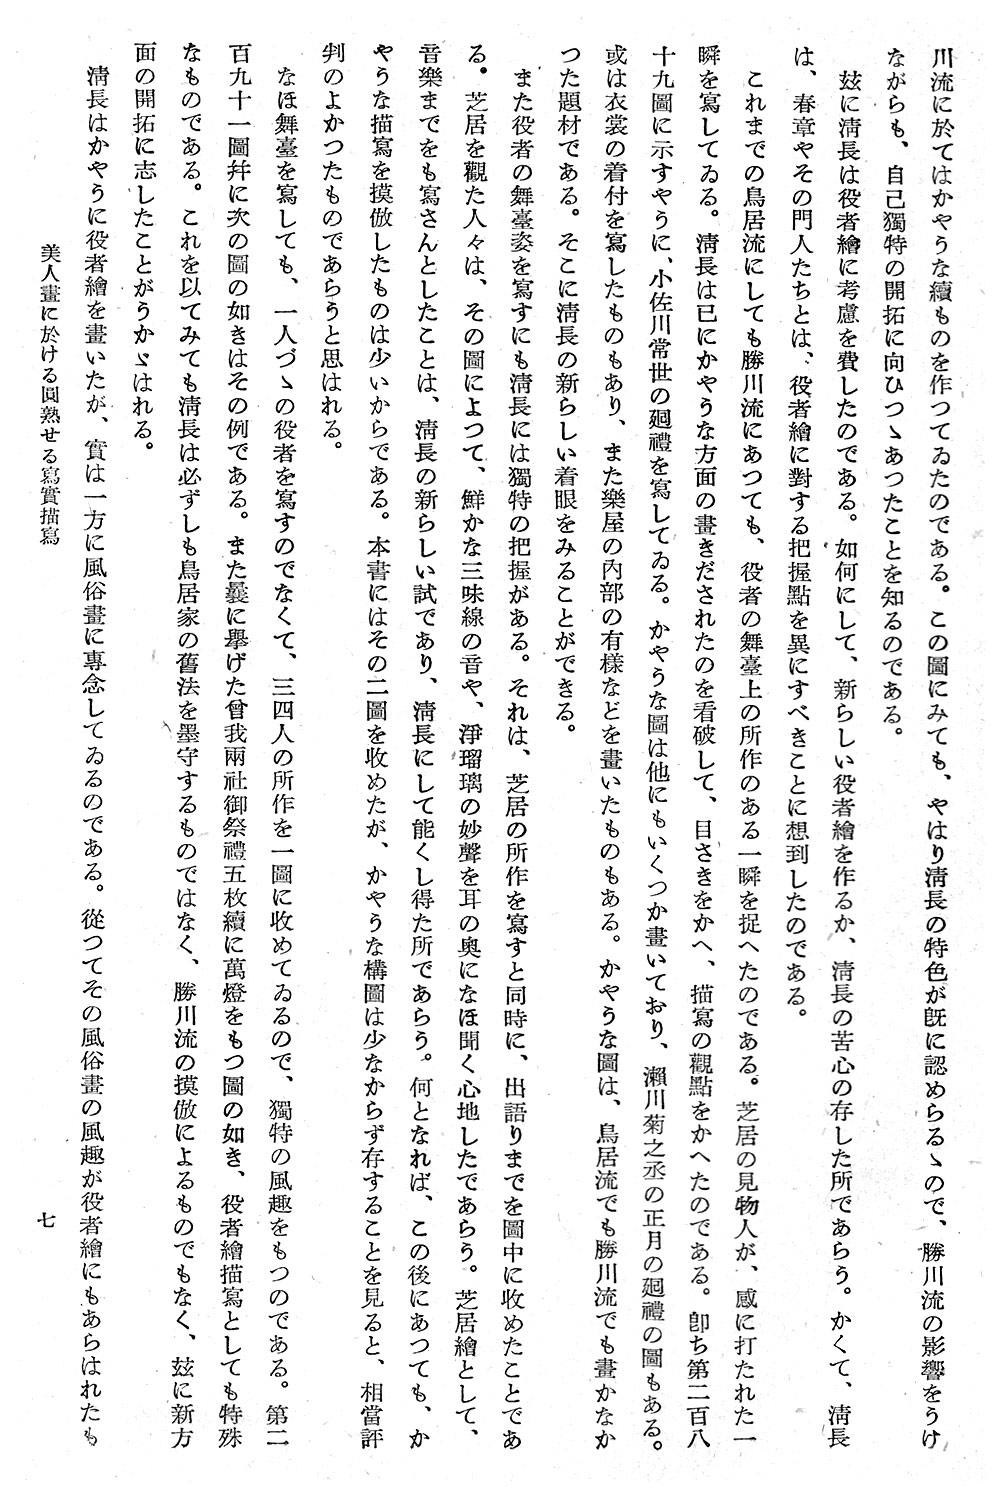 川流に於てはかやうな續ものを作つてゐたのである。この圖にみても、やはり淸長の特色が旣に認めらるゝので、勝川流の影響をうけ
ながらも、自己獨特の開拓に向ひつゝあつたことを知るのである。
玆に淸長は役者繪に考慮を費したのである。如何にして、新らしい役者繪を作るか、淸長の苦心の存した所であらう。かくて、淸長
は、春章やその門人たちとは、役者繪に對する把握點を異にすべきことに想到したのである。
これまでの鳥居流にしても勝川流にあつても、役者の舞臺上の所作のある一瞬を捉へたのである。芝居の見物人が、感に打たれた一
瞬を寫してゐる。淸長は已にかやうな方面の畫きだされたのを看破して、目さきをかへ、描寫の觀點をかへたのである。卽ち第二百八
十九圖に示すやうに、小佐川常世の廻禮を寫してゐる。かやうな圖は他にもいくつか畫いており、瀨川菊之丞の正月の廻禮の圖もある。
或は衣裳の着付を寫したものもあり、また樂屋の內部の有樣などを畫いたものもある。かやうな圖は、鳥居流でも勝川流でも畫かなか
つた題材である。そこに淸長の新らしい着眼をみることができる。
また役者の舞臺姿を寫すにも淸長には獨特の把握がある。それは、芝居の所作を寫すと同時に、出語りまでを圖中に收めたことであ
る。芝居を觀た人々は、その圖によつて、鮮かな三味線の音や、淨瑠璃の妙聲を耳の奧になほ聞く心地したであらう。芝居繪として、
音樂までをも寫さんとしたことは、淸長の新らしい試であり、淸長にして能くし得た所であらう。何となれば、この後にあつても、か
やうな描寫を摸倣したものは少いからである。本書にはその二圖を收めたが、かやうな構圖は少なからず存することを見ると、相當評
判のよかつたものであらうと思はれる。
なほ舞臺を寫しても、一人づゝの役者を寫すのでなくて、三四人の所作を一圖に收めてゐるので、獨特の風趣をもつのである。第二
百九十一圖幷に次の圖の如きはその例である。また曩に擧げた曾我兩社御祭禮五枚續に萬燈をもつ圖の如き、役者繪描寫としても特殊
なものである。これを以てみても淸長は必ずしも鳥居家の舊法を墨守するものではなく、勝川流の摸倣によるものでもなく、玆に新方
面の開拓に志したことがうかゞはれる。
淸長はかやうに役者繪を畫いたが、實は一方に風俗畫に專念してゐるのである。從つてその風俗畫の風趣が役者繪にもあらはれたも
美人畫に於ける圓熟せる寫實描寫
七